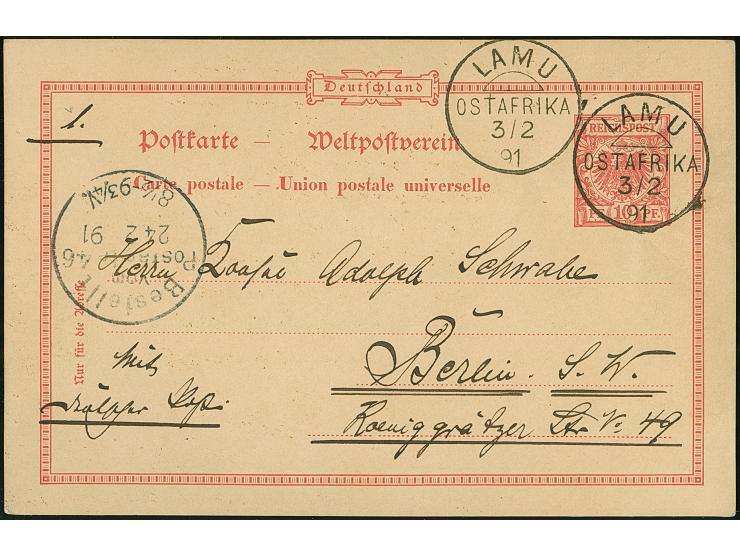 Deutschland
LAMU
OSTAFRIKA
3/2
91
LAMU
OSTAFRIKA
3/2
91
REICHSPOST
10 PF.
1.
Postkarte — Weltpostverein
Carte postale — Union postale universelle
Bestellt
vom
Postamte 46
24 2 91
8¼-9¾V.
Herrn Adolph Schwabe
Berlin. S. W.
Koeniggrätzer Str No 49
Nur für die